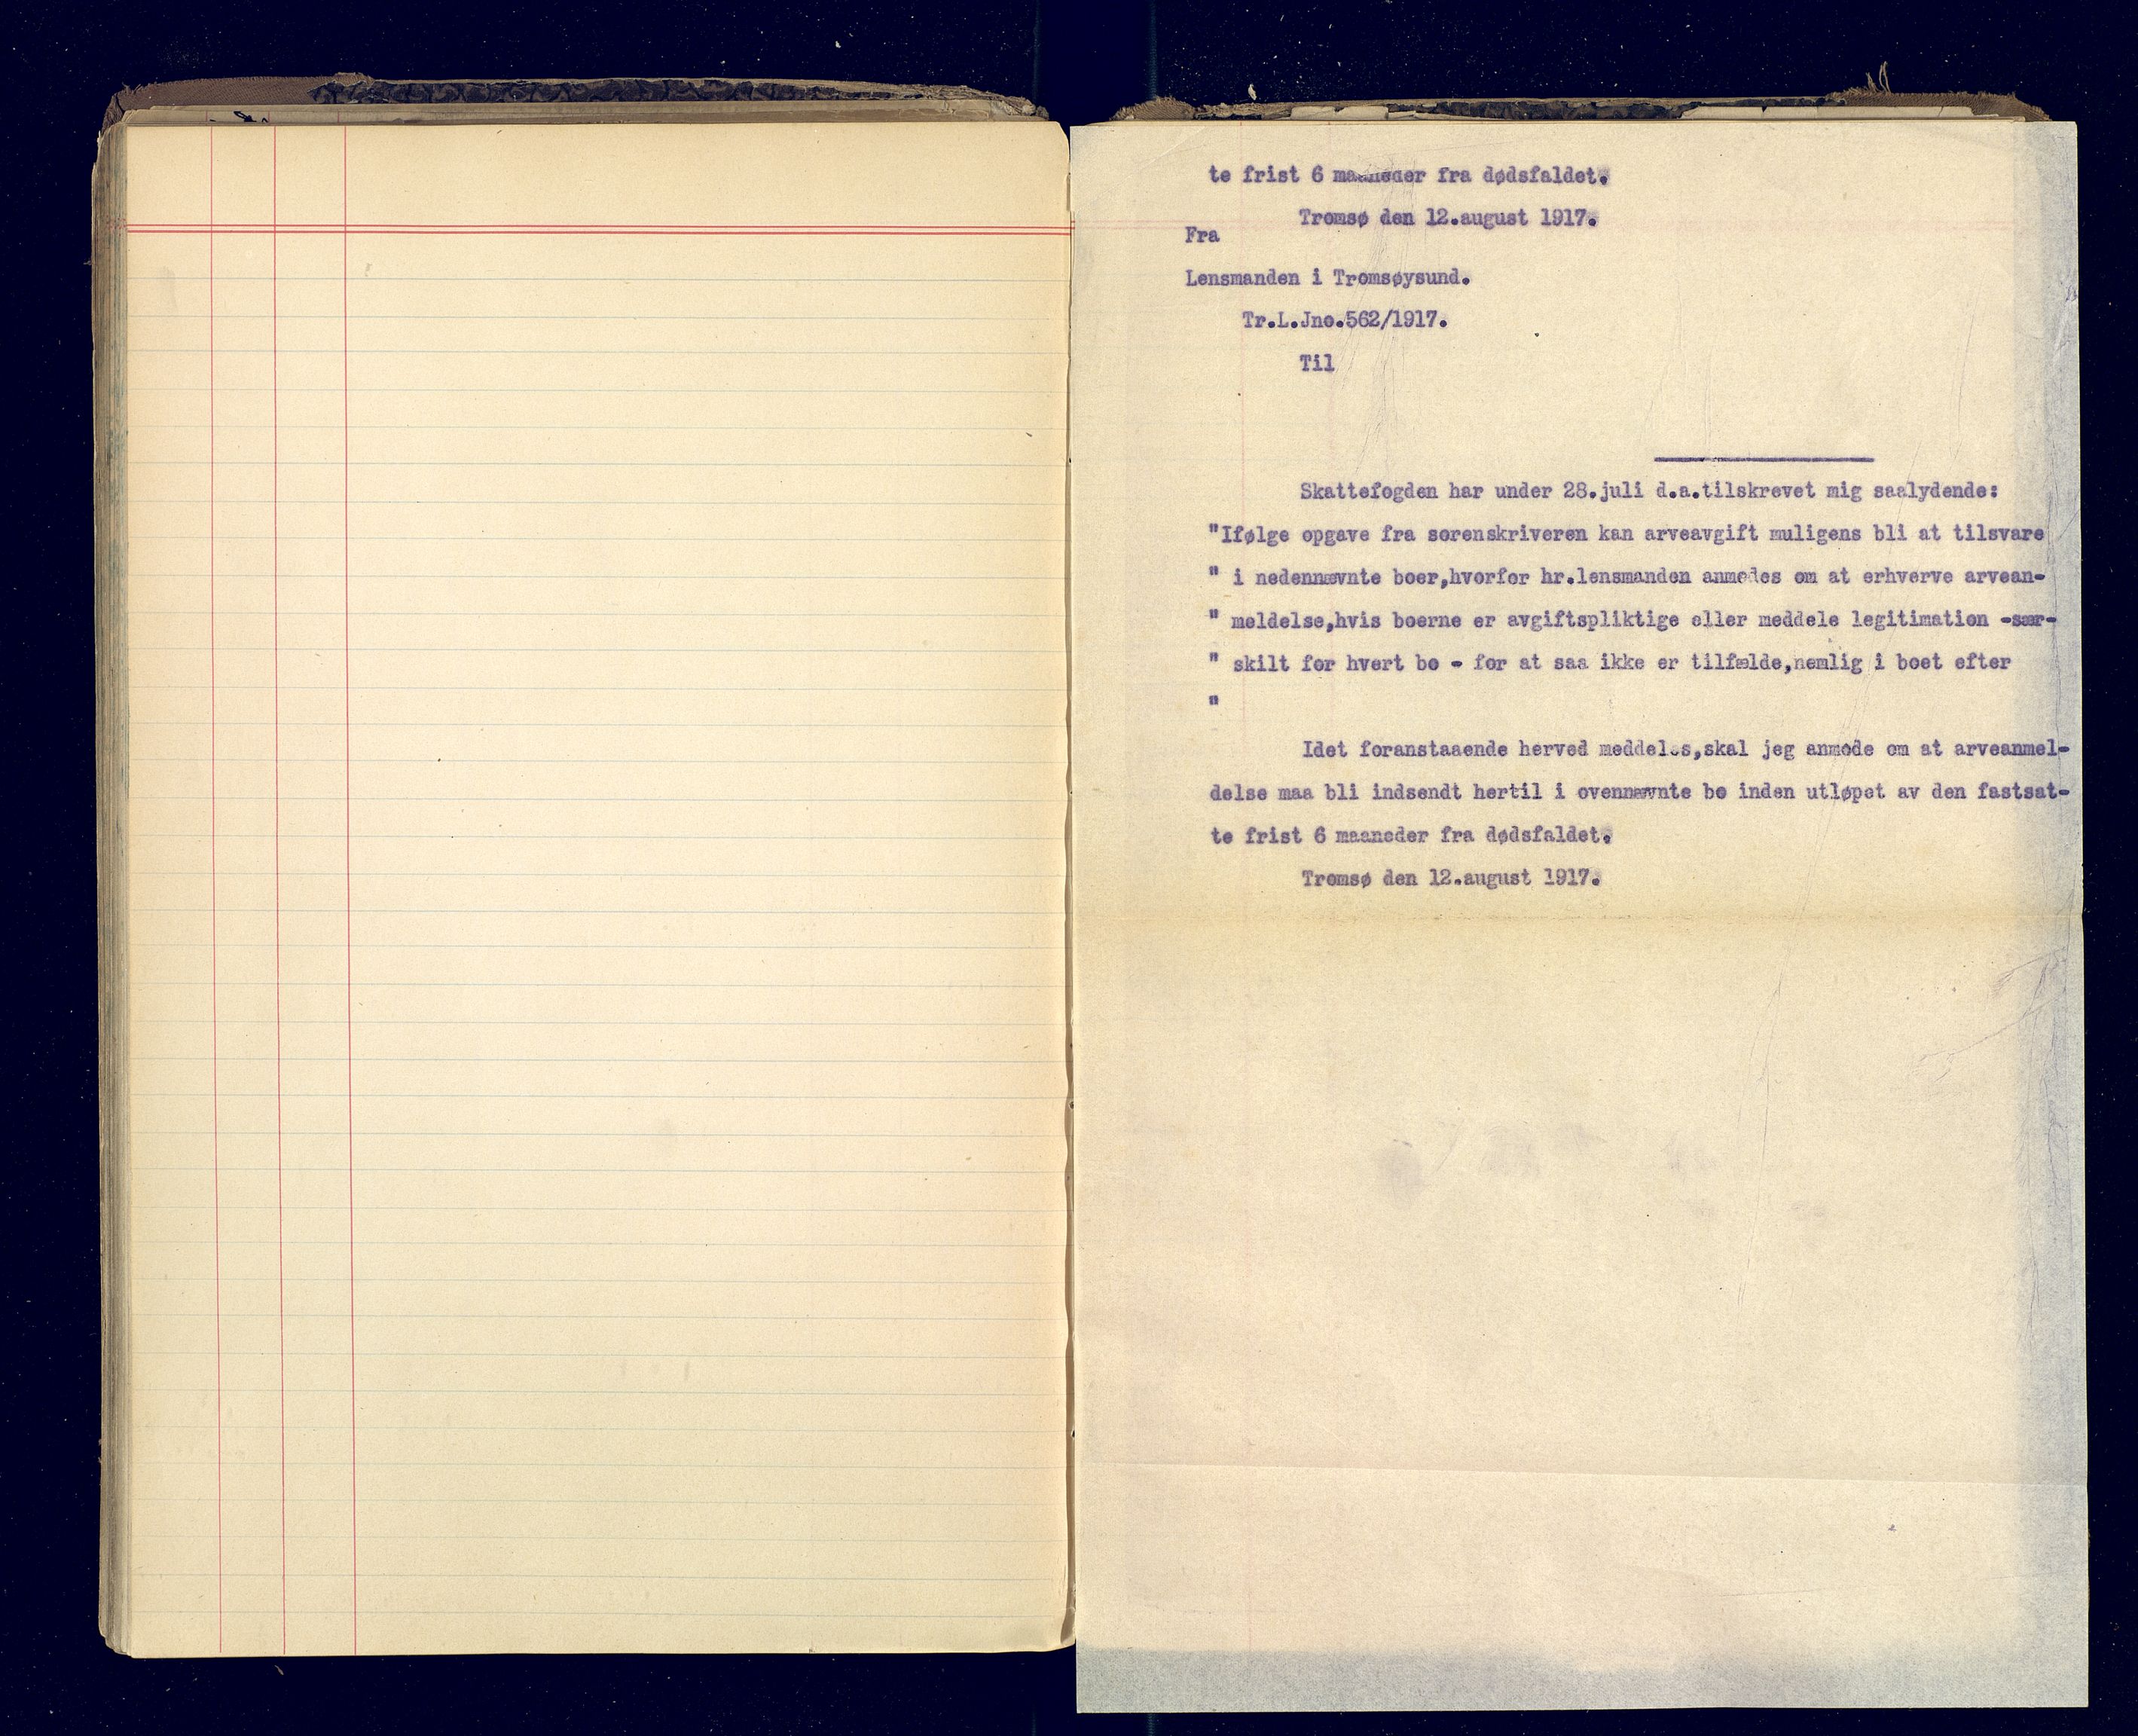 te frist 6 maaneder fra dødsfaldet.
Tromsø den 12.august 1917.
Fra
Lensmanden i Tromsøysund.
Tr.L.Jno.562/1917.
Til
Skattefogden har under 28.juli d.a.tilskrevet mig saalydende:
"Ifølge opgave fra sorenskriveren kan arveavgift muligens bli at tilsvare
" i nedennævnte boer,hvorfor hr.lensmanden anmodes om at erhverve arvean-
" meldelse,hvis boerne er avgiftspliktige eller meddele legitimation -sær-
" skilt for hvert bo - for at saa ikke er tilfælde,nemlig i boet efter
"
Idet foranstaaende herved meddeles,skal jeg anmode om at arveanmel-
delse maa bli indsendt hertil i ovennævnte bo inden utløpet av den fastsat-
te frist 6 maaneder fra dødsfaldet.
Tromsø den 12.august 1917.